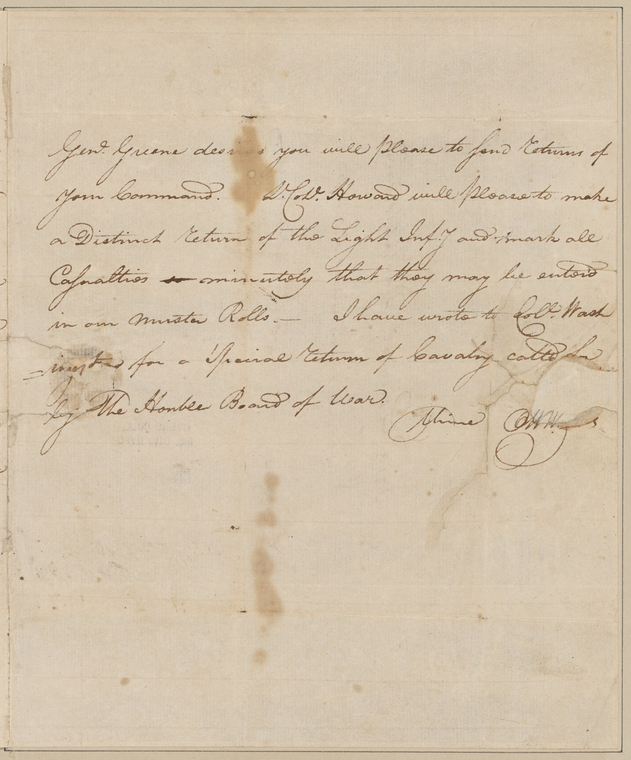 Genl. Greene desires you will please to send returns of
your Command. Lt. Colo. Howard will please to make
a Distinct return of the Light Infy and mark all
Casualties minutely that they may be enterd
in our muster Rolls.— I have wrote to Colo. Wash
=ington for a Special return of Cavalry called for
by The Honble Board of War.
Mine OHW